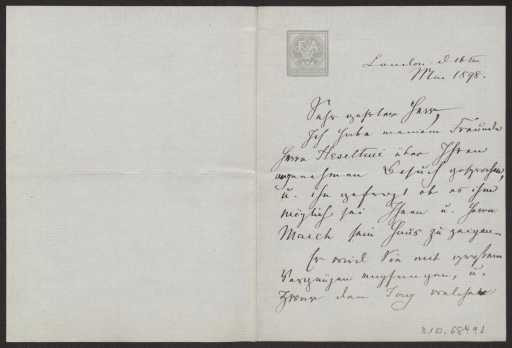 London d. 16ten
Mai 1898.
Sehr geehrter Herr,
Ich habe meinem Freunde
Herrn Heseltine über Ihren
angenehmen Besuch gesprochen,
u. ihn gefragt ob es ihm
möglich sei Ihnen u. Herrn
March sein Haus zu zeigen.
Er wird Sie mit grossem
Vergnügen empfangen, u.
zwar den Tag welchen